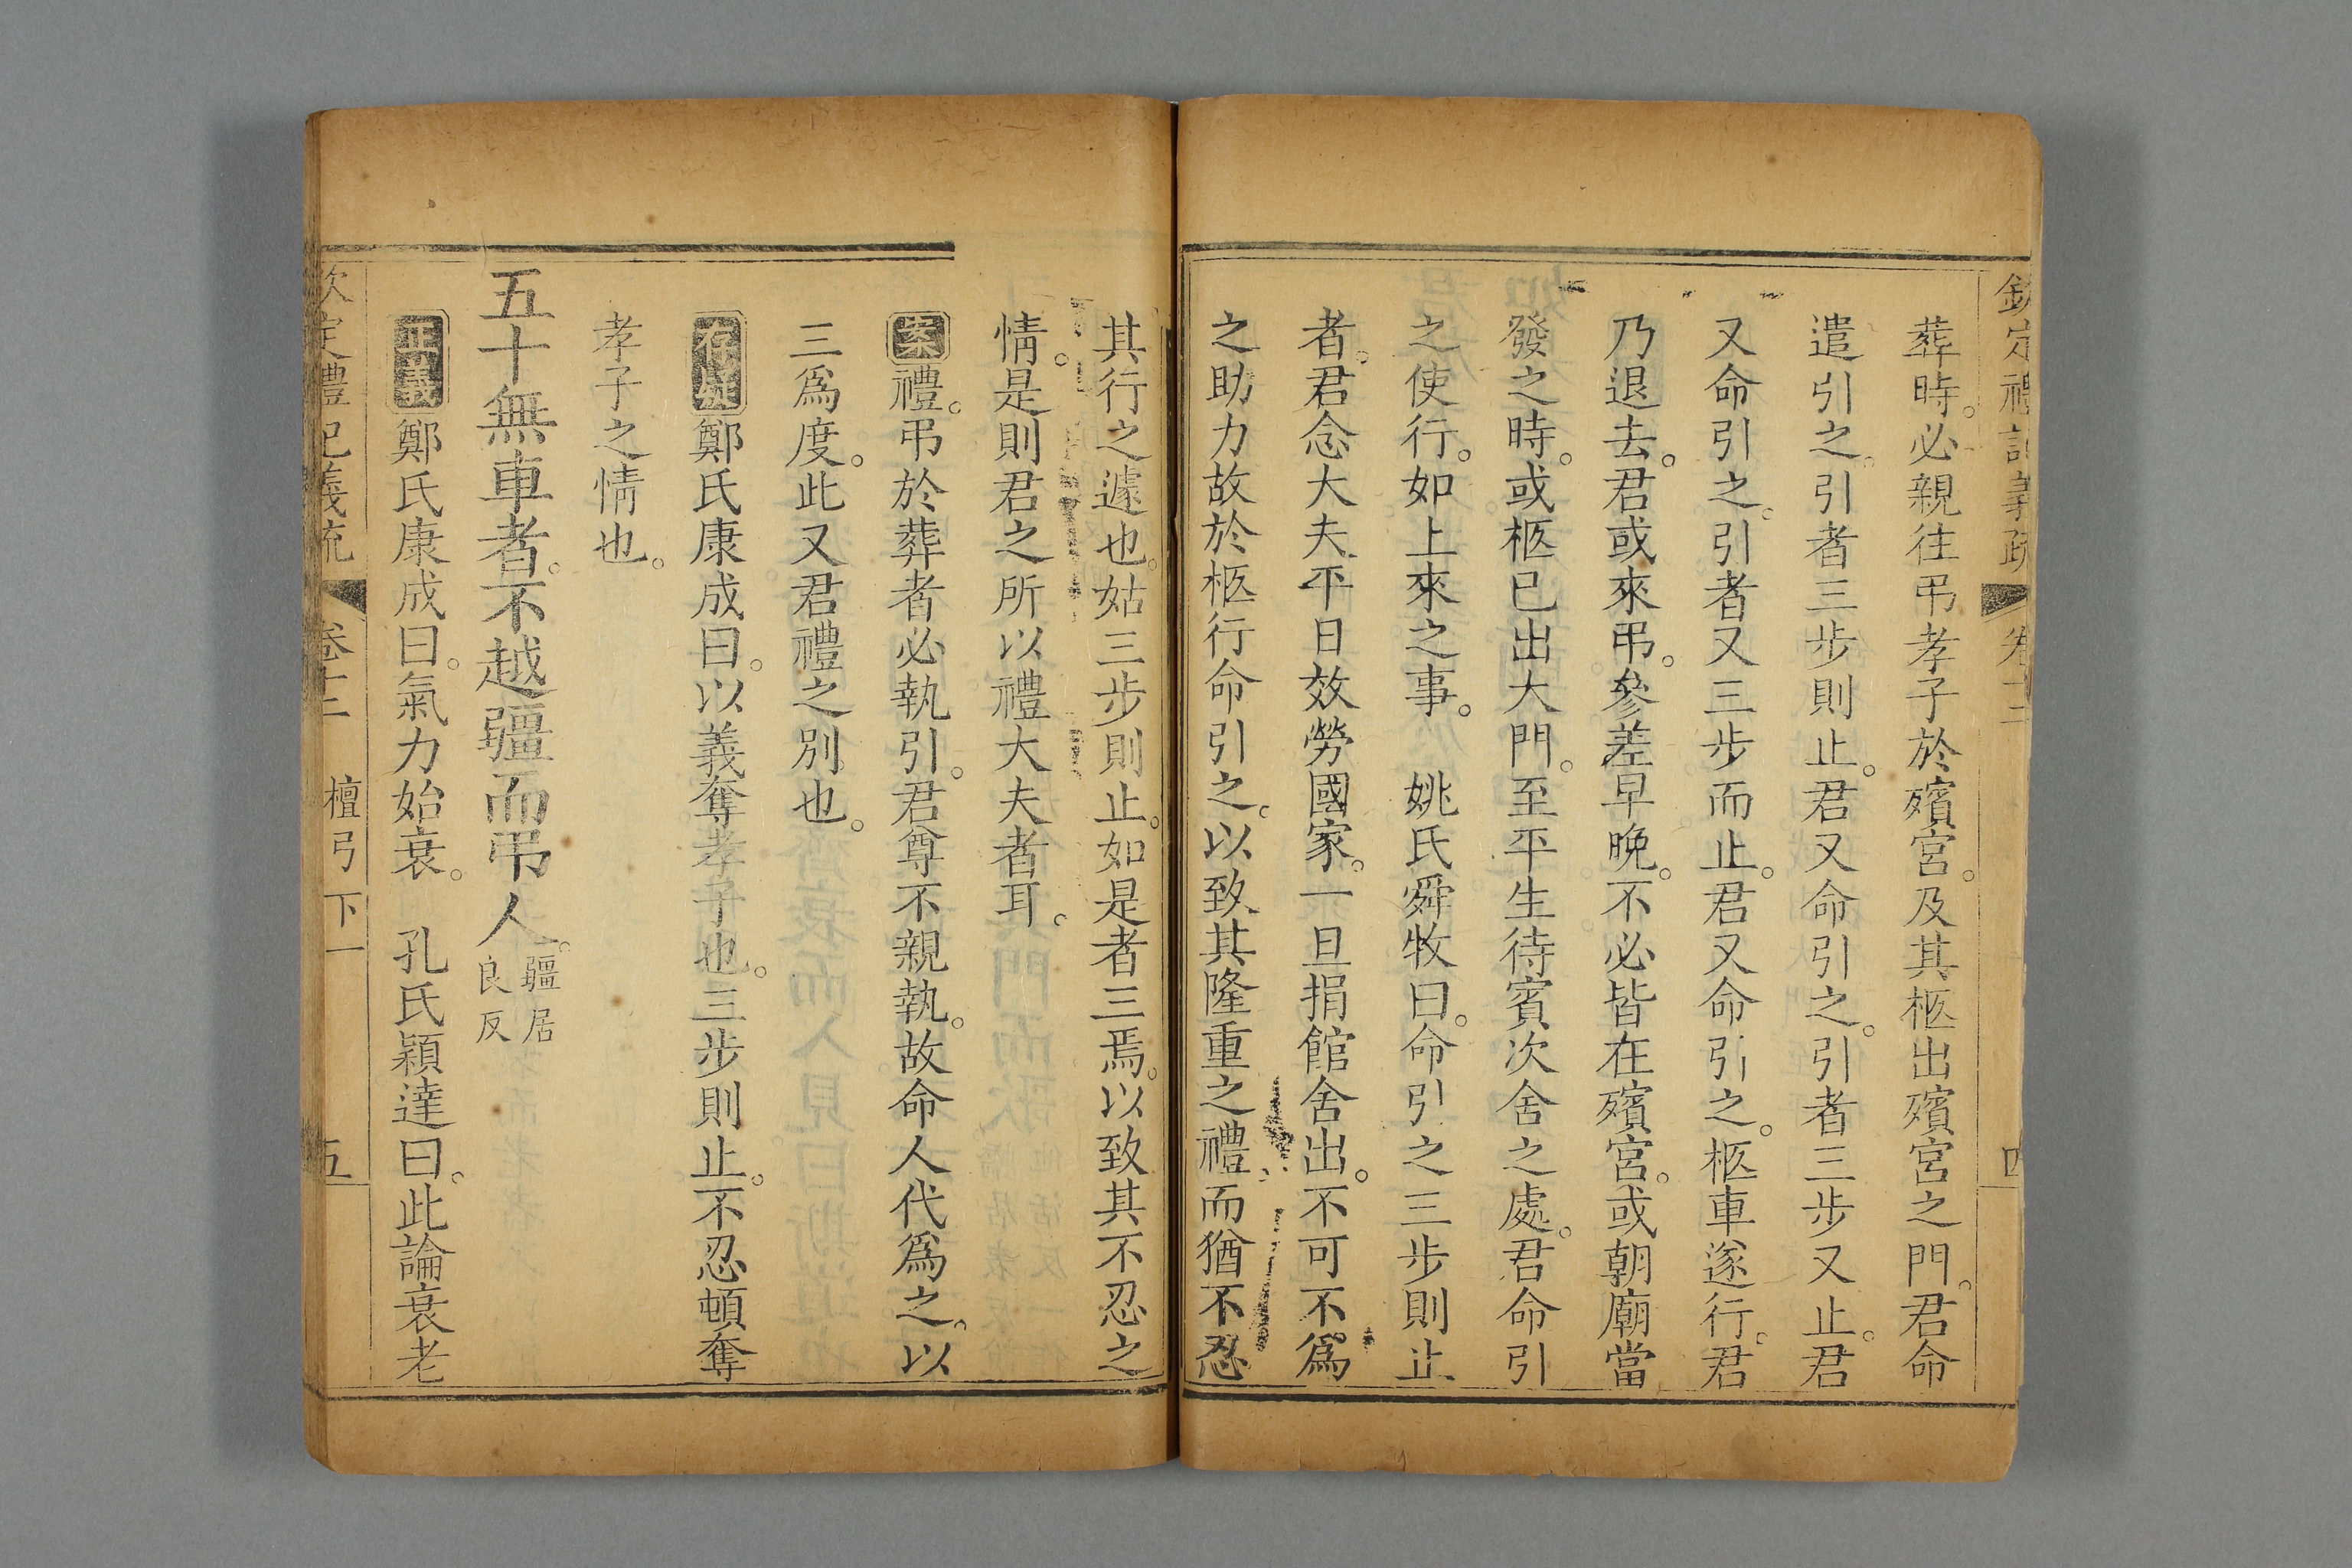 欽定禮記義疏 卷十二 四
葬時。必親往弔孝子於殯宮。及其柩出殯宮之門。君命
遣引之。引者三步則止。君又命引之。引者三步又止。君
又命引之。引者又三步而止。君又命引之。柩車遂行。君
乃退去。君或來弔。參差早晚。不必皆在殯宮。或朝廟當
發之時。或柩已出大門。至平生待賓次舍之處。君命引
之使行。如上來之事。 姚氏舜牧曰。命引之三步則止
者。君念大夫平日效勞國家。一旦捐館舍出。不可不為
之助力故於柩行命引之。以致其隆重之禮而猶不忍
其行之遽也。姑三步則止。如是者三焉。以致其不忍之
情。是則君之所以禮大夫者耳。
案禮。弔於葬者必執引。君尊不親執。故命人代為之。以
三為度。此又君禮之別也。
存疑鄭氏康成曰。以義奪孝子也。三步則止。不忍頓奪
孝子之情也。
五十無車者。不越疆而弔人。疆居
良反
正義鄭氏康成曰。氣力始衰。 孔氏穎達曰。此論衰老
欽定禮記義疏 卷十二 檀弓下一 五